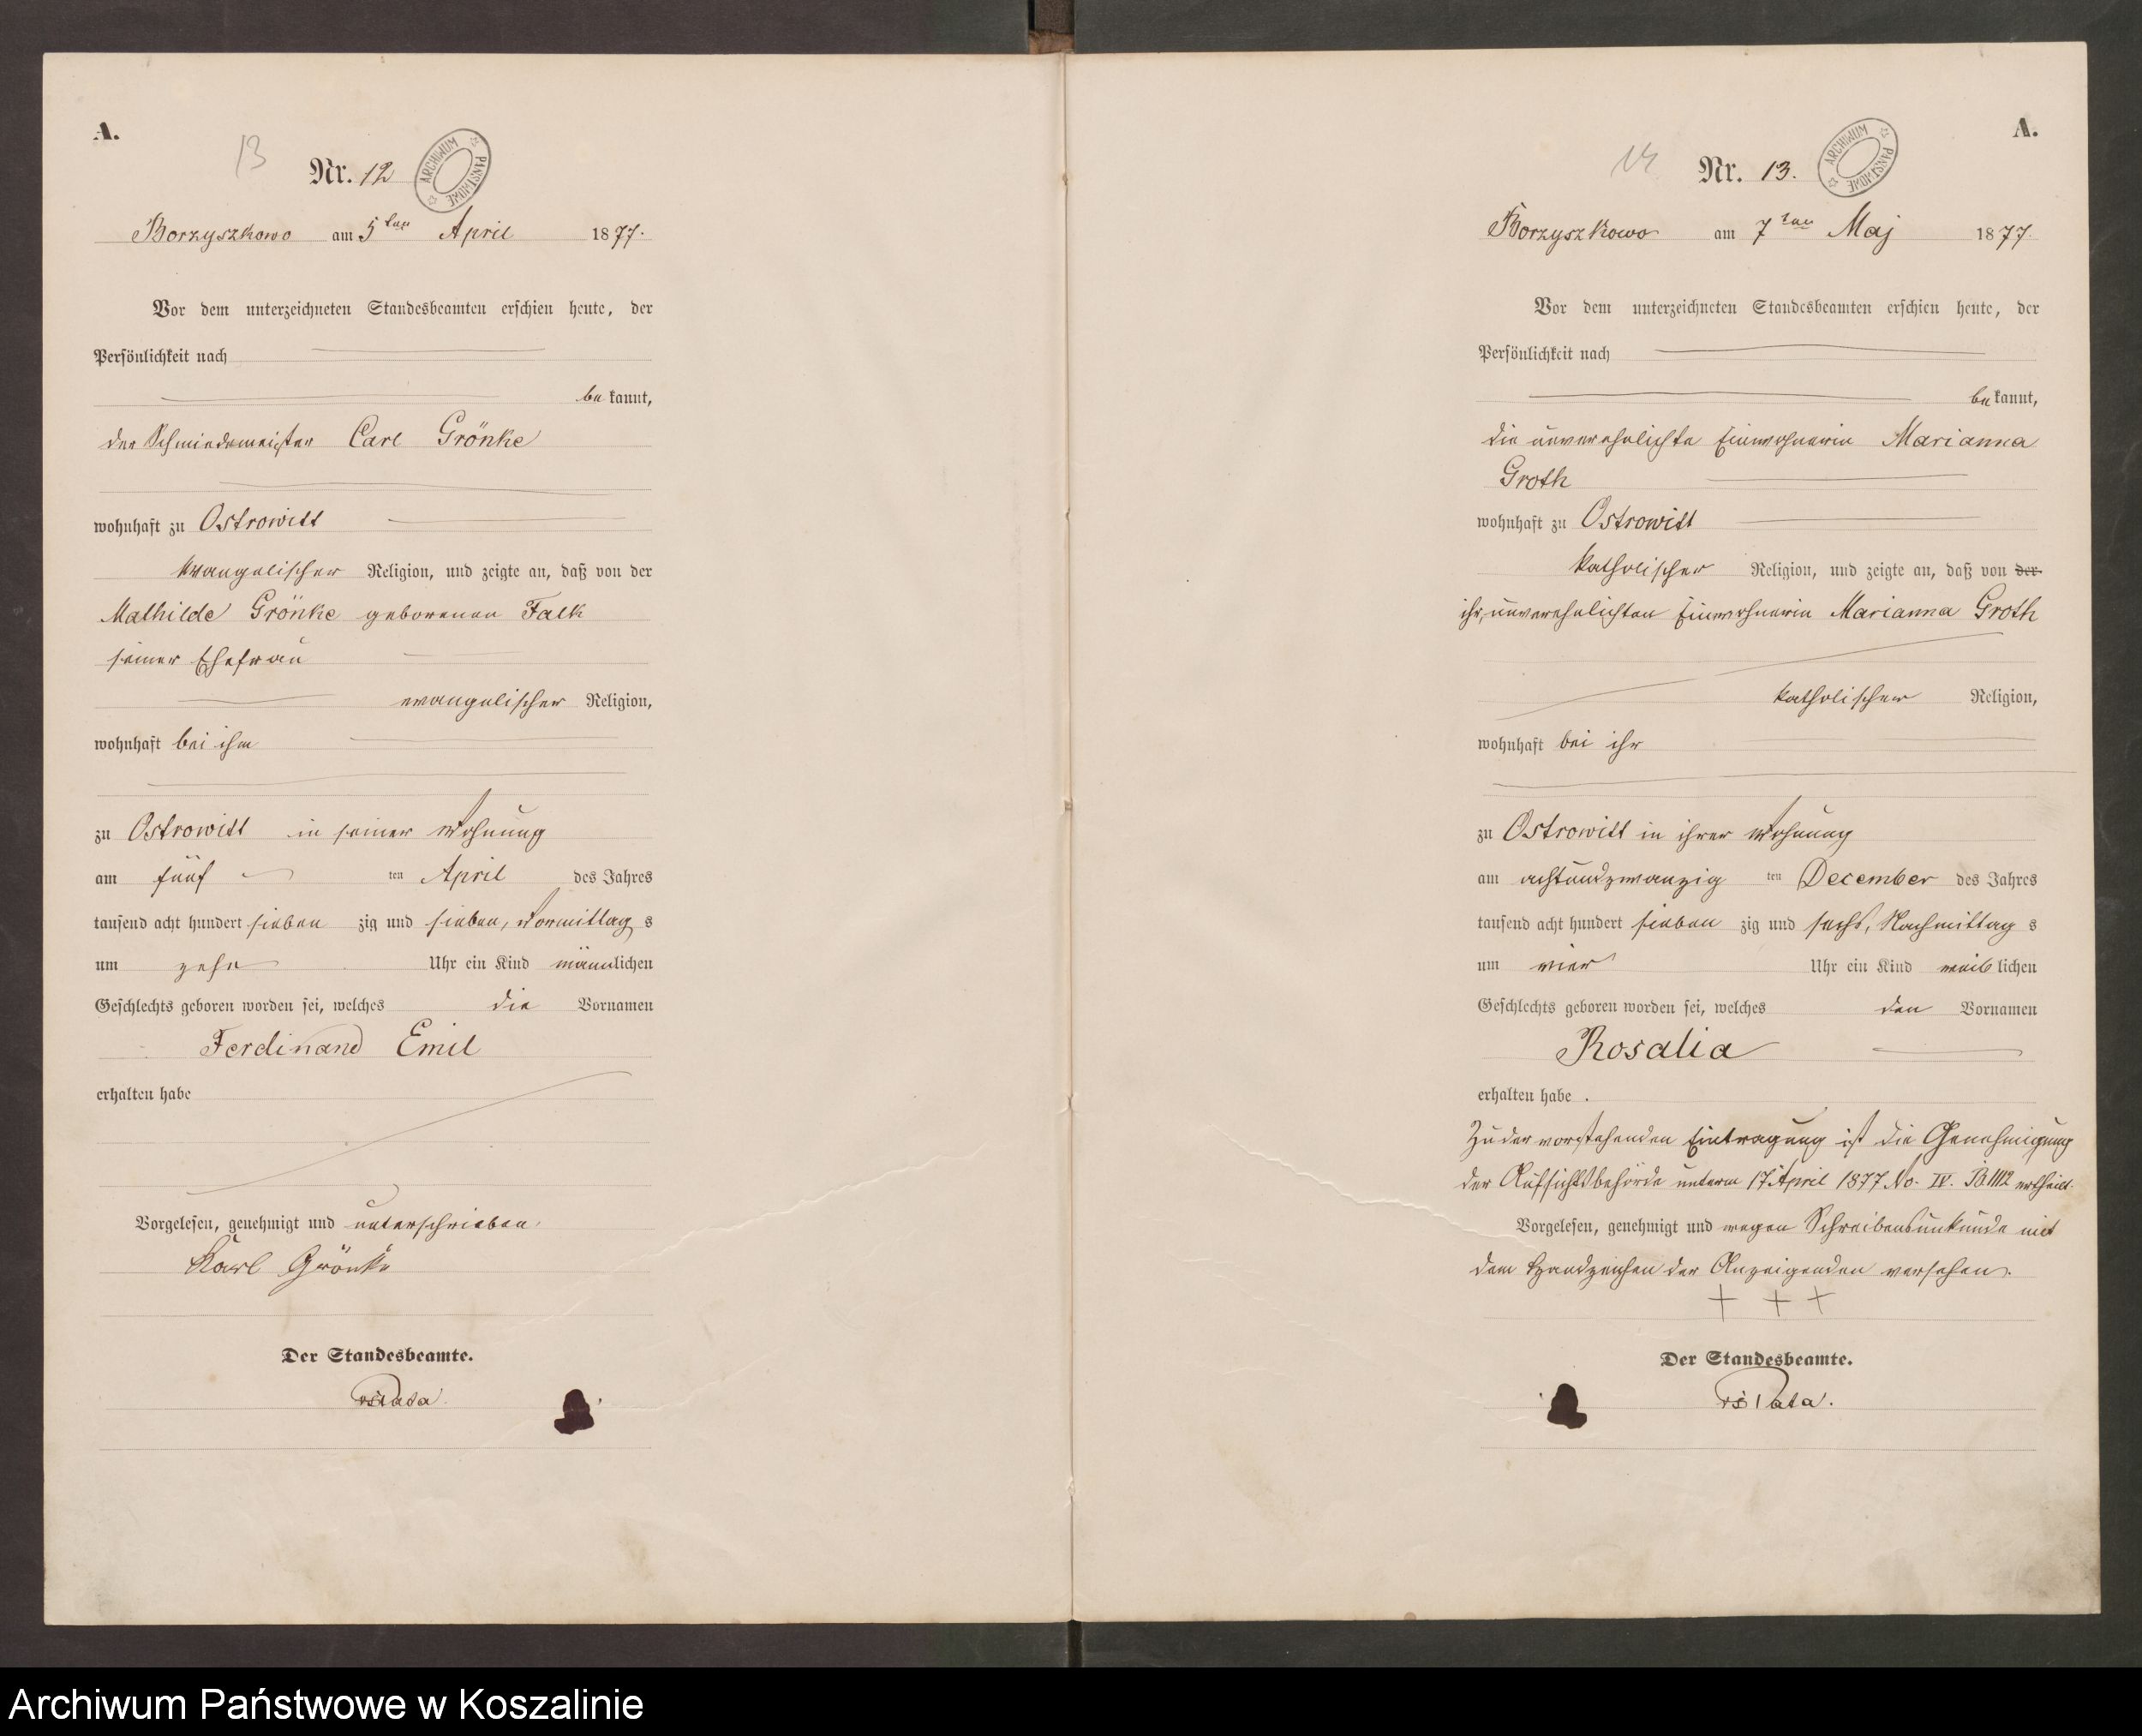 A.
13
Nr. 12
ARCHIWUM PAŃSTWOWE
Borzyszkowo am 5ten April 1877.
Vor dem unterzeichneten Standesbeamten erschien heute, der
Persönlichkeit nach
bekannt,
der Schmiedemeister Carl Grönke
wohnhaft zu Ostrowitt
evangelischer Religion, und zeigte an, daß von der
Mathilde Grönke geborenen Falk
seiner Ehefrau
evangelischer Religion,
wohnhaft bei ihm
zu Ostrowitt in seiner Wohnung
am fünf ten April des Jahres
tausend acht hundert sieben zig und sieben, Vormittag s
um zehn Uhr ein Kind männlichen
Geschlechts geboren worden sei, welches die Vornamen
Ferdinand Emil
erhalten habe
Vorgelesen, genehmigt und unterschrieben.
Karl Grönke
Der Standesbeamte.
A.
14
Nr. 13.
ARCHIWUM PAŃSTWOWE
Borzyszkowo am 7ten Maj 1877.
Vor dem unterzeichneten Standesbeamten erschien heute, der
Persönlichkeit nach
bekannt,
die unverehelichte Einwohnerin Marianna
Groth
wohnhaft zu Ostrowitt
katholischer Religion, und zeigte an, daß von der
ihr, unverehelichten Einwohnerin Marianna Groth
katholischer Religion,
wohnhaft bei ihr
zu Ostrowitt in ihrer Wohnung
am achtundzwanzig ten December des Jahres
tausend acht hundert sieben zig und sechs, Nachmittag s
um vier Uhr ein Kind weiblichen
Geschlechts geboren worden sei, welches den Vornamen
Rosalia
erhalten habe .
Zu der vorstehenden Eintragung ist die Genehmigung
der Aufsichtsbehörde unterm 17 April 1877 No. IV. B 1112 ertheilt.
Vorgelesen, genehmigt und wegen Schreibensunkunde mit
dem Handzeichen der Anzeigenden versehen.
+ + +
Der Standesbeamte.
Archiwum Państwowe w Koszalinie